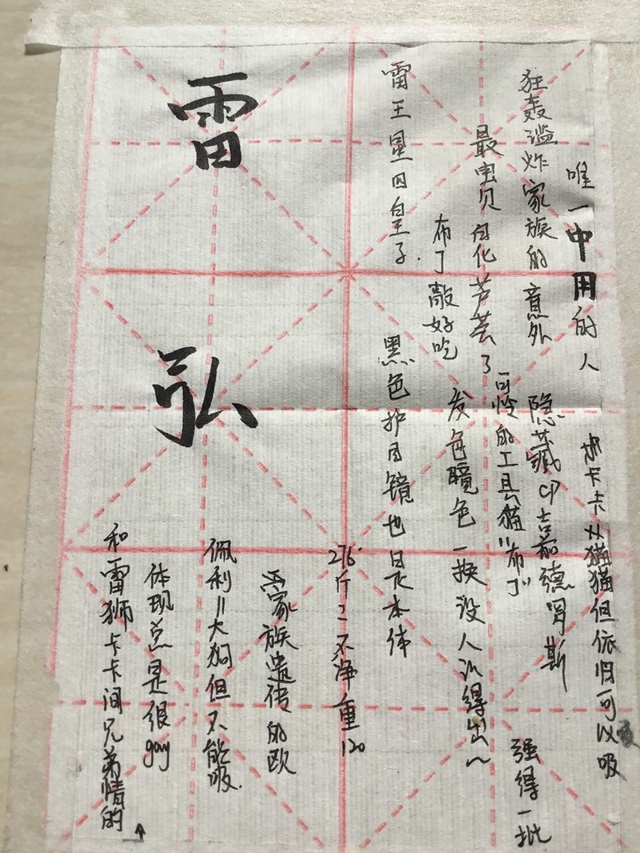 唯一中用的人
卡卡从猫猫但依旧可以吸
狂轰滥炸家族的意外
隐藏cp吉嘉德罗斯
强得一批
最宝贝的化芦荟了
可怜的工具猫"布丁"
布丁敲好吃
发色瞳色一换没人认得出~
雷王星四皇子.
黑色护目镜也是本体
276斤=不净重120
家族遗传的欧
佩利=大狗但不能吸.
体现总是很gay
和雷狮卡卡间兄弟情的↑
雷
弘